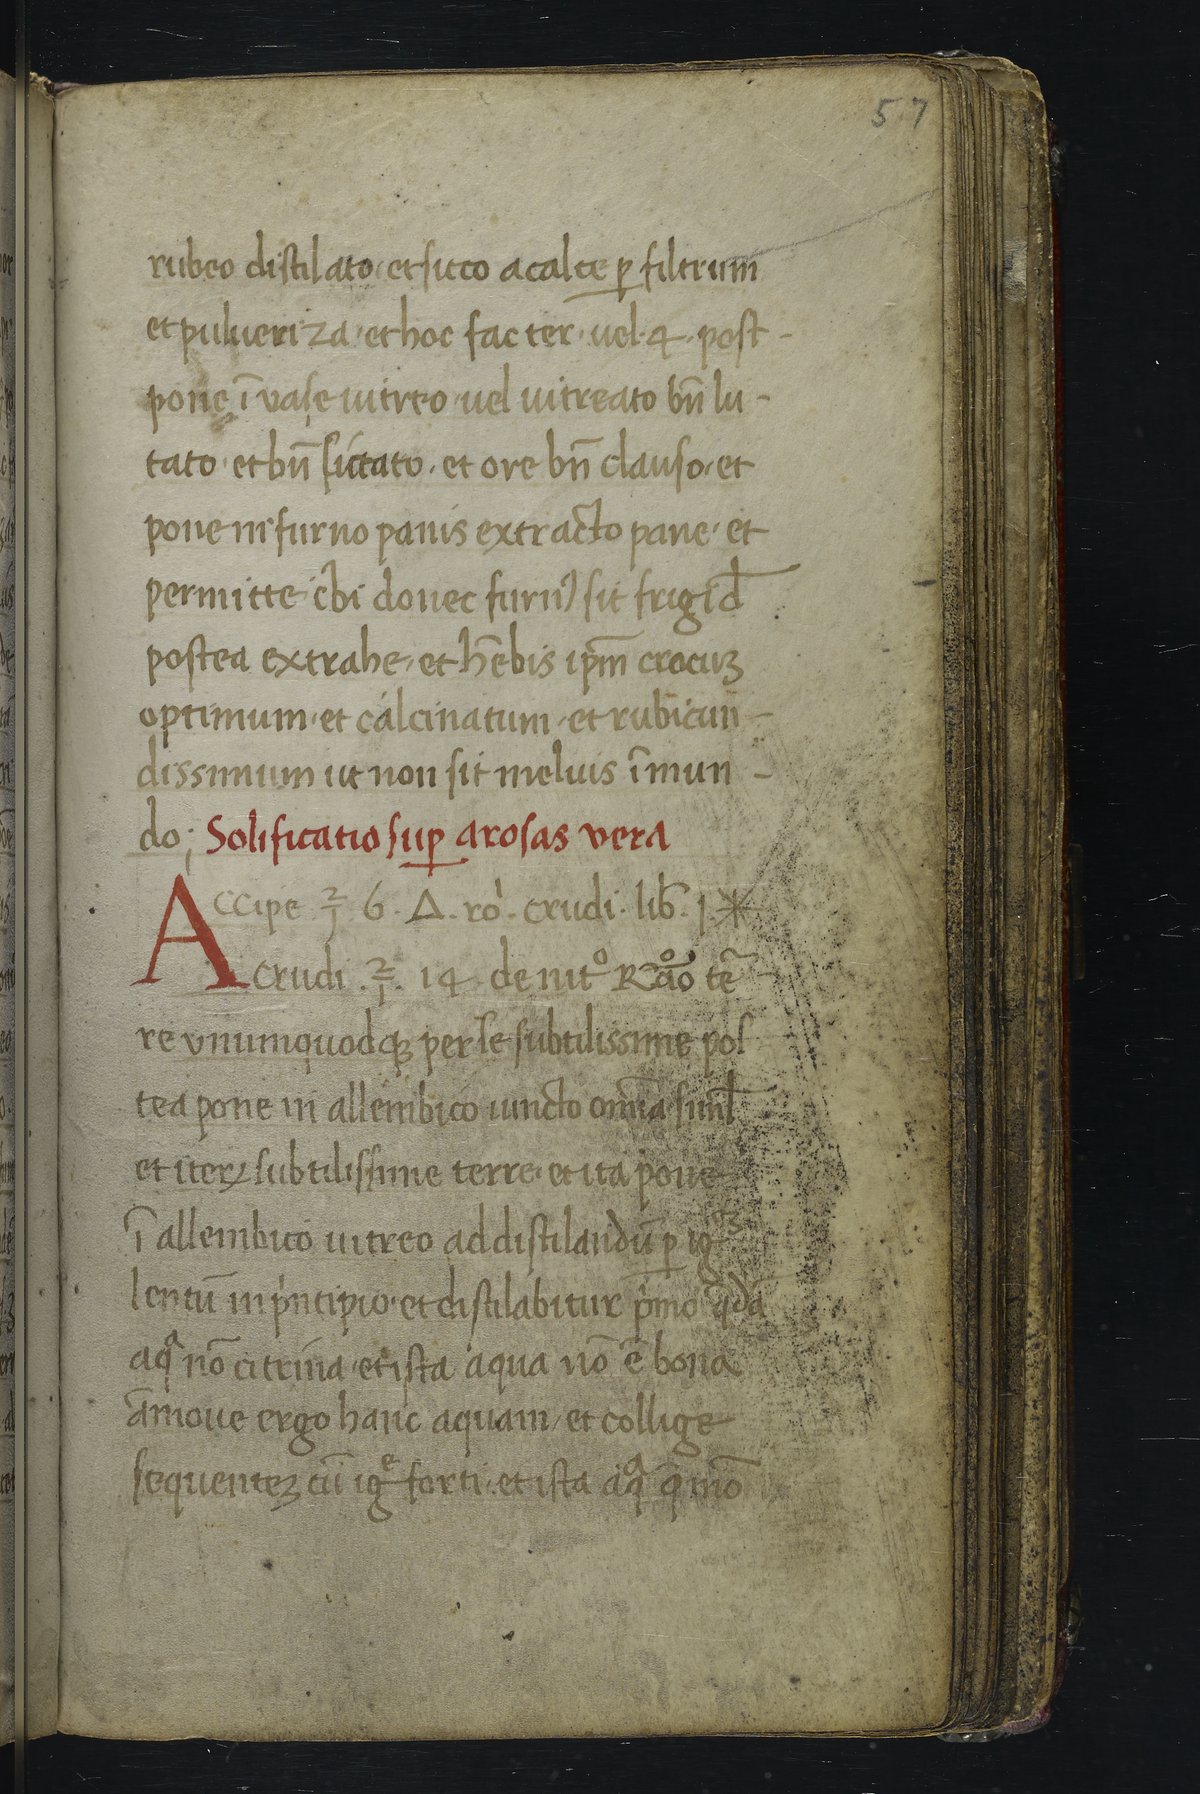 57
rubeo distilato · et sicco a calce ꝑ filtrum
et pulueriza · et hoc fac ter · uel · 4 · post -
pone ī vase uitreo · uel uitreato bn̄ lu -
tato · et bn̄ siccato · et ore bn̄ clauso · et
pone in furno panis extracto pane · et
permitte · ibi donec furnꝰ sit frigid
postea extrahe · et hēbis ip̄m crocuꝫ
optimum · et calcinatum · et rubicun̄ -
dissimum ut non sit meluis ī mun -
do ; Solificatio suꝑ arosas vera
Accipe 6 · Δ · ro · crudi · lib · j ·
crudi · 14 de nitº te
re vnumquodqꝫ per se subtilissime pos
tea pone in allembico iuncto omīa simł
et iteꝝ subtilissime terre · et ita pone
ī allembico uitreo ad distilandū ꝑ ig
lentū in pͥncipio · et distilabitur pͥmo qͣdā
aqͣ nō citrina · et ista aqua nō ē bona
āmoue ergo hanc aquam · et collige
sequenteꝫ cū igͤ forti · et ista aqͣ